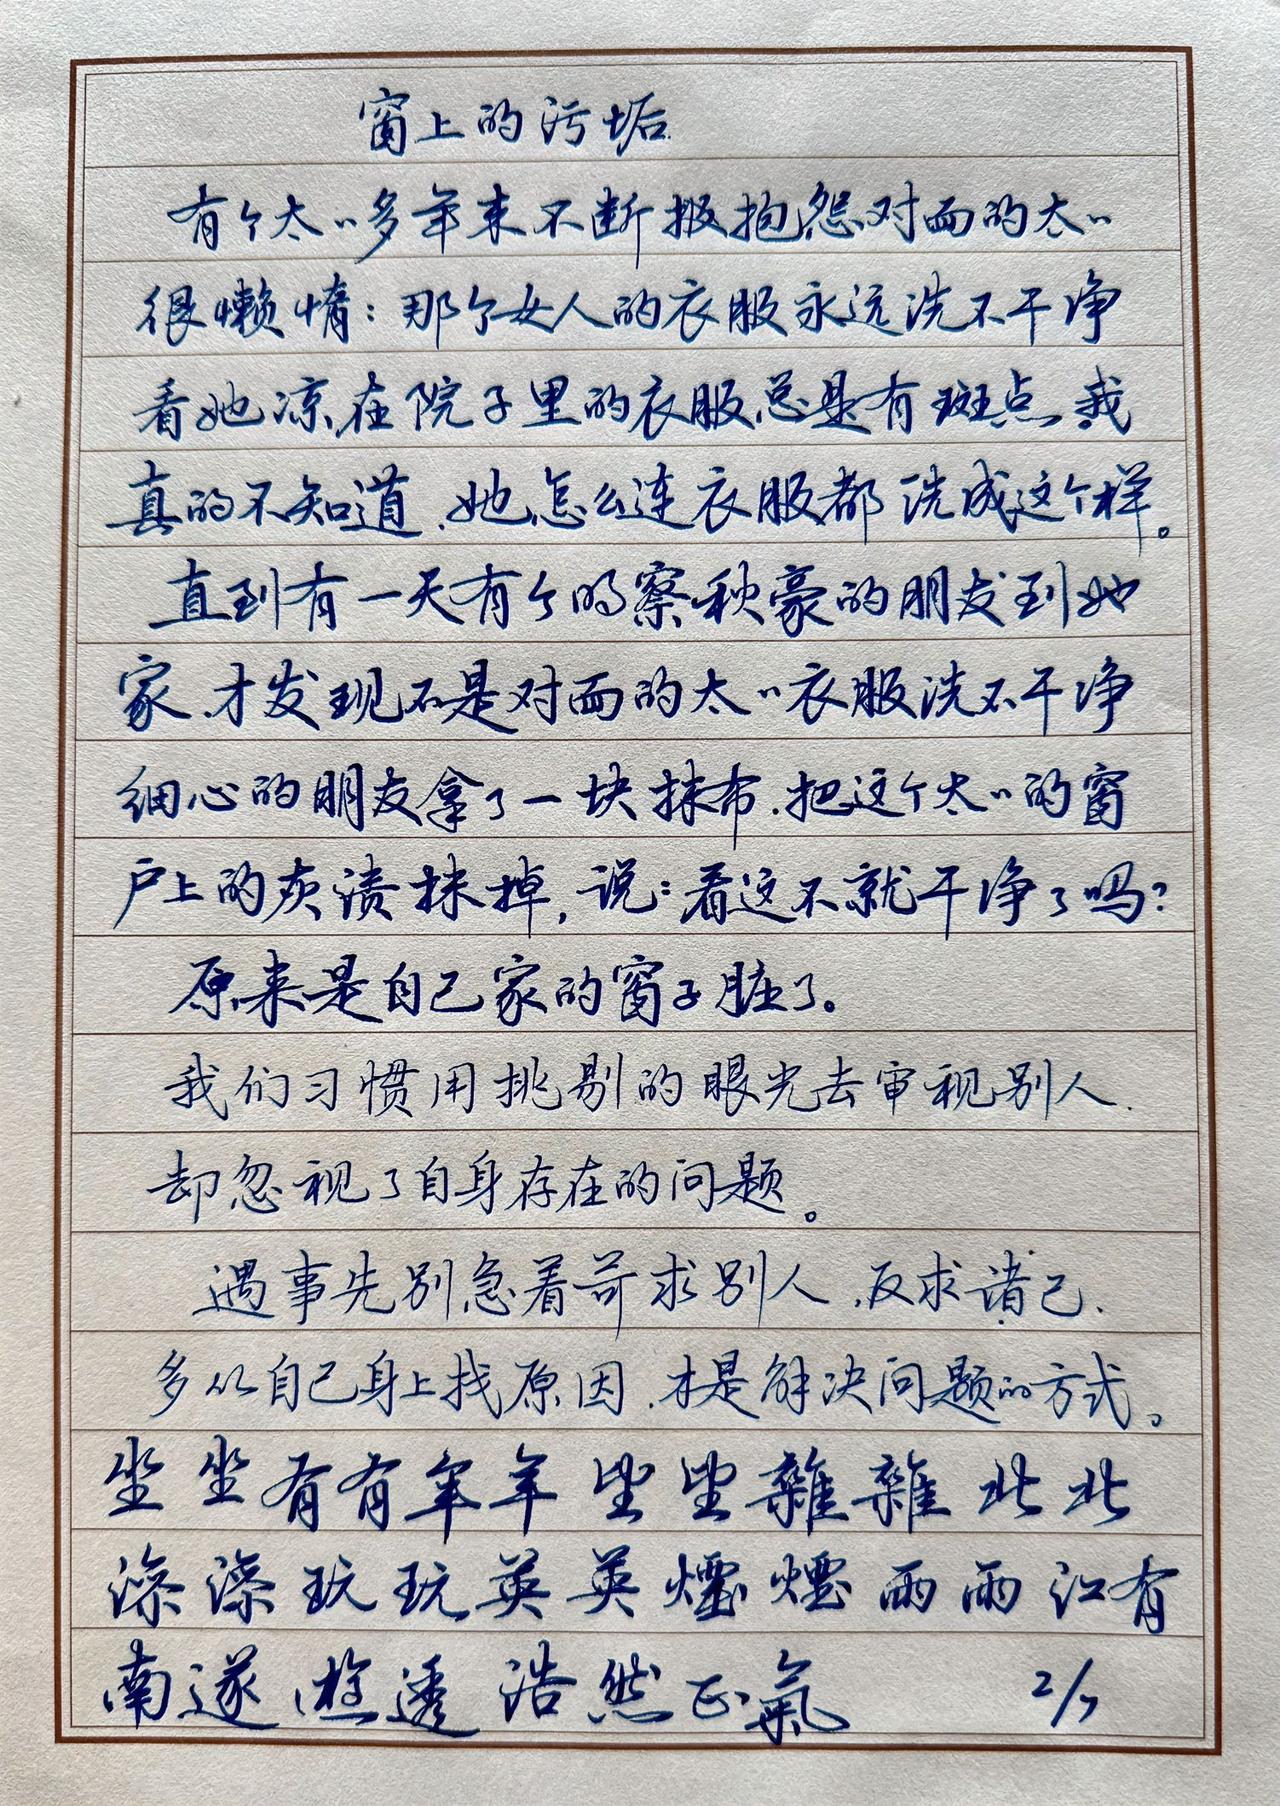 窗上的污垢
有个太〃多年来不断报抱怨对面的太〃
很懒惰：那个女人的衣服永远洗不干净
看她凉在院子里的衣服总是有斑点，我
真的不知道，她怎么连衣服都洗成这个样。
直到有一天有个明察秋豪的朋友到她
家，才发现不是对面的太〃衣服洗不干净
细心的朋友拿了一块抹布，把这个太〃的窗
户上的灰渍抹掉，说：看这不就干净了吗？
原来是自己家的窗子脏了。
我们习惯用挑剔的眼光去审视别人，
却忽视了自身存在的问题。
遇事先别急着苛求别人，反求诸己，
多从自己身上找原因，才是解决问题的方式。
坐坐有有年年坐坐雜雜北北
深深玩玩英英煙煙雨雨江有
南遂游透浩然正氣 2/7